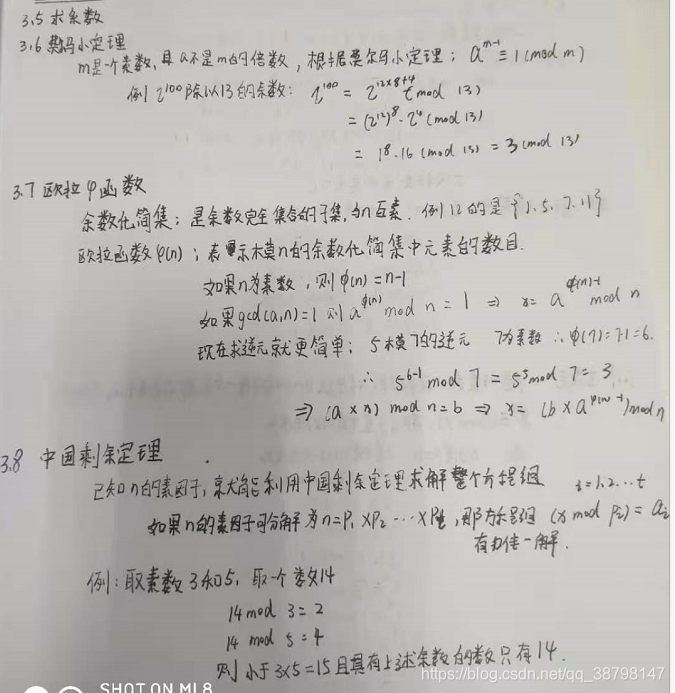 3.5 求余数
3.6 费马小定理
m是一个素数,且a不是m的倍数,根据费尔马小定理: a^{m-1} ≡ 1 (mod m)
例 2^{100} 除以13的余数: 2^{100} = 2^{12×8+4} (mod 13)
= (2^{12})^8 · 2^4 (mod 13)
= 1^8 · 16 (mod 13) = 3 (mod 13)
3.7 欧拉φ函数
余数化简集: 是余数完全集合的子集,与n互素. 例12的是{1.5.7.11}
欧拉函数φ(n): 表示模n的余数化简集中元素的数目.
如果n为素数,则φ(n)=n-1
如果gcd(a,n)=1 则 a^{φ(n)} mod n = 1 ⇒ x = a^{φ(n)-1} mod n
现在求逆元就更简单: 5模7的逆元 7为素数 ∴ φ(7)=7-1=6.
∴ 5^{6-1} mod 7 = 5^5 mod 7 = 3
⇒ (a × x) mod n = b ⇒ x = (b × a^{φ(n)-1}) mod n
3.8 中国剩余定理
已知n的素因子,就能利用中国剩余定理求解整个方程组 i=1.2...t
如果n的素因子可分解为n=P1×P2…×Pt,那方程组 (x mod Pi) = ai
有唯一解.
例: 取素数3和5, 取一个数14
14 mod 3 = 2
14 mod 5 = 4
则小于3×5=15且具有上述余数的数只有14.
SHOT ON MI 8
https://blog.csdn.net/qq_38798147